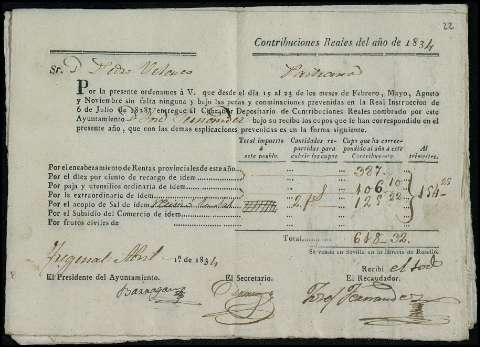 22
Contribuciones Reales del año de 1834
Sr. D. Pedro Velasco
Por la presente ordenamos á V. que desde el dia 15 al 23 de los meses de Febrero, Mayo, Agosto
y Noviembre sin falta ninguna y bajo las penas y conminaciones prevenidas en la Real Instruccion de
6 de Julio de 1828, entregue al Cobrador Depositario de Contribuciones Reales nombrado por este
Ayuntamiento D. José Fernandez bajo su recibo los cupos que le han correspondido en el
presente año, que con las demas esplicaciones prevenidas es en la forma siguiente.
Total impuesto á este pueblo. Cantidades repartidas para cubrir los cupos Cupo que ha correspondido al año á este Contribuyente. Al trimestre.
Por el encabezamiento de Rentas provinciales de este año 387
Por el diez por ciento de recargo de idem
Por paja y utensilios ordinaria de idem 106 10
Por la extraordinaria de idem 154 23
Por el acopio de Sal de idem 125 22
Por el Subsidio del Comercio de idem
Por frutos civiles de
Total 618 32
Se venden en Sevilla en la librería de
Fregenal Abril 1º de 1834
Recibí
El Presidente del Ayuntamiento. El Secretario. El Recaudador.
Barragan José Fernandez